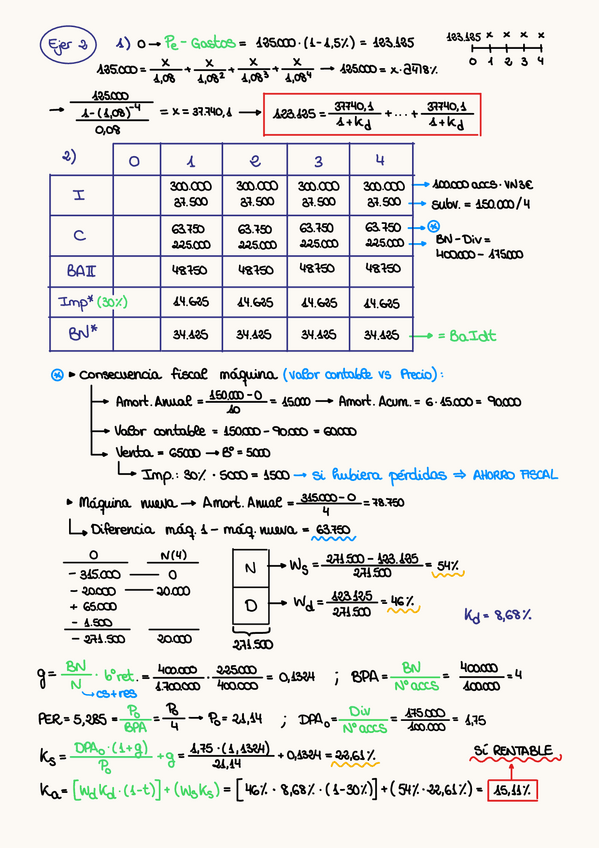 Ejer 2
1) 0 → Pe - Gastos = 125.000 · (1 - 1,5%) = 123.125
123.125 x x x x
0 1 2 3 4
125.000 = x/1,08 + x/1,08² + x/1,08³ + x/1,08⁴ → 125.000 = x · a4⌉8%
→ 125.000 / ((1-(1,08)⁻⁴)/0,08) = x = 37.740,1 → 123.125 = 37740,1/1+Kd + ... + 37740,1/1+Kd
2)
0 1 2 3 4
I 300.000 300.000 300.000 300.000 → 100.000 accs · VN3€
37.500 37.500 37.500 37.500 → subv. = 150.000/4
C 63.750 63.750 63.750 63.750 → *
225.000 225.000 225.000 225.000 → BN - Div =
400.000 - 175.000
BAII 48750 48750 48750 48750
Imp* (30%) 14.625 14.625 14.625 14.625
BN* 34.125 34.125 34.125 34.125 → = BaIdt
* ▸ Consecuencia fiscal máquina (valor contable vs Precio):
→ Amort. Anual = 150.000 - 0 / 10 = 15.000 → Amort. Acum. = 6 · 15.000 = 90.000
→ Valor contable = 150.000 - 90.000 = 60.000
→ Venta = 65000 → Bº = 5000
→ Imp.: 30% · 5000 = 1500 → si hubiera pérdidas ⇒ AHORRO FISCAL
▸ Máquina nueva → Amort. Anual = 315.000 - 0 / 4 = 78.750
→ Diferencia máq. 1 - máq. nueva = 63.750
0 N(4)
- 315.000 — 0
- 20.000 — 20.000
+ 65.000
- 1.500
- 271.500 20.000
N → Ws = 271.500 - 123.125 / 271.500 = 54%
D → Wd = 123.125 / 271.500 = 46%
271.500
Kd = 8,68%
g = BN/N · bº ret. = 400.000/1.700.000 · 225.000/400.000 = 0,1324 ; BPA = BN/Nº accs = 400.000/100.000 = 4
→ cs + res
PER = 5,285 = P₀/BPA = P₀/4 → P₀ = 21,14 ; DPA₀ = Div/Nº accs = 175.000/100.000 = 1,75
Ks = DPA₀ · (1+g)/P₀ + g = 1,75 · (1,1324)/21,14 + 0,1324 = 22,61%
SÍ RENTABLE
Ka = [Wd Kd · (1-t)] + (Ws Ks) = [46% · 8,68% · (1-30%)] + (54% · 22,61%) = 15,11%